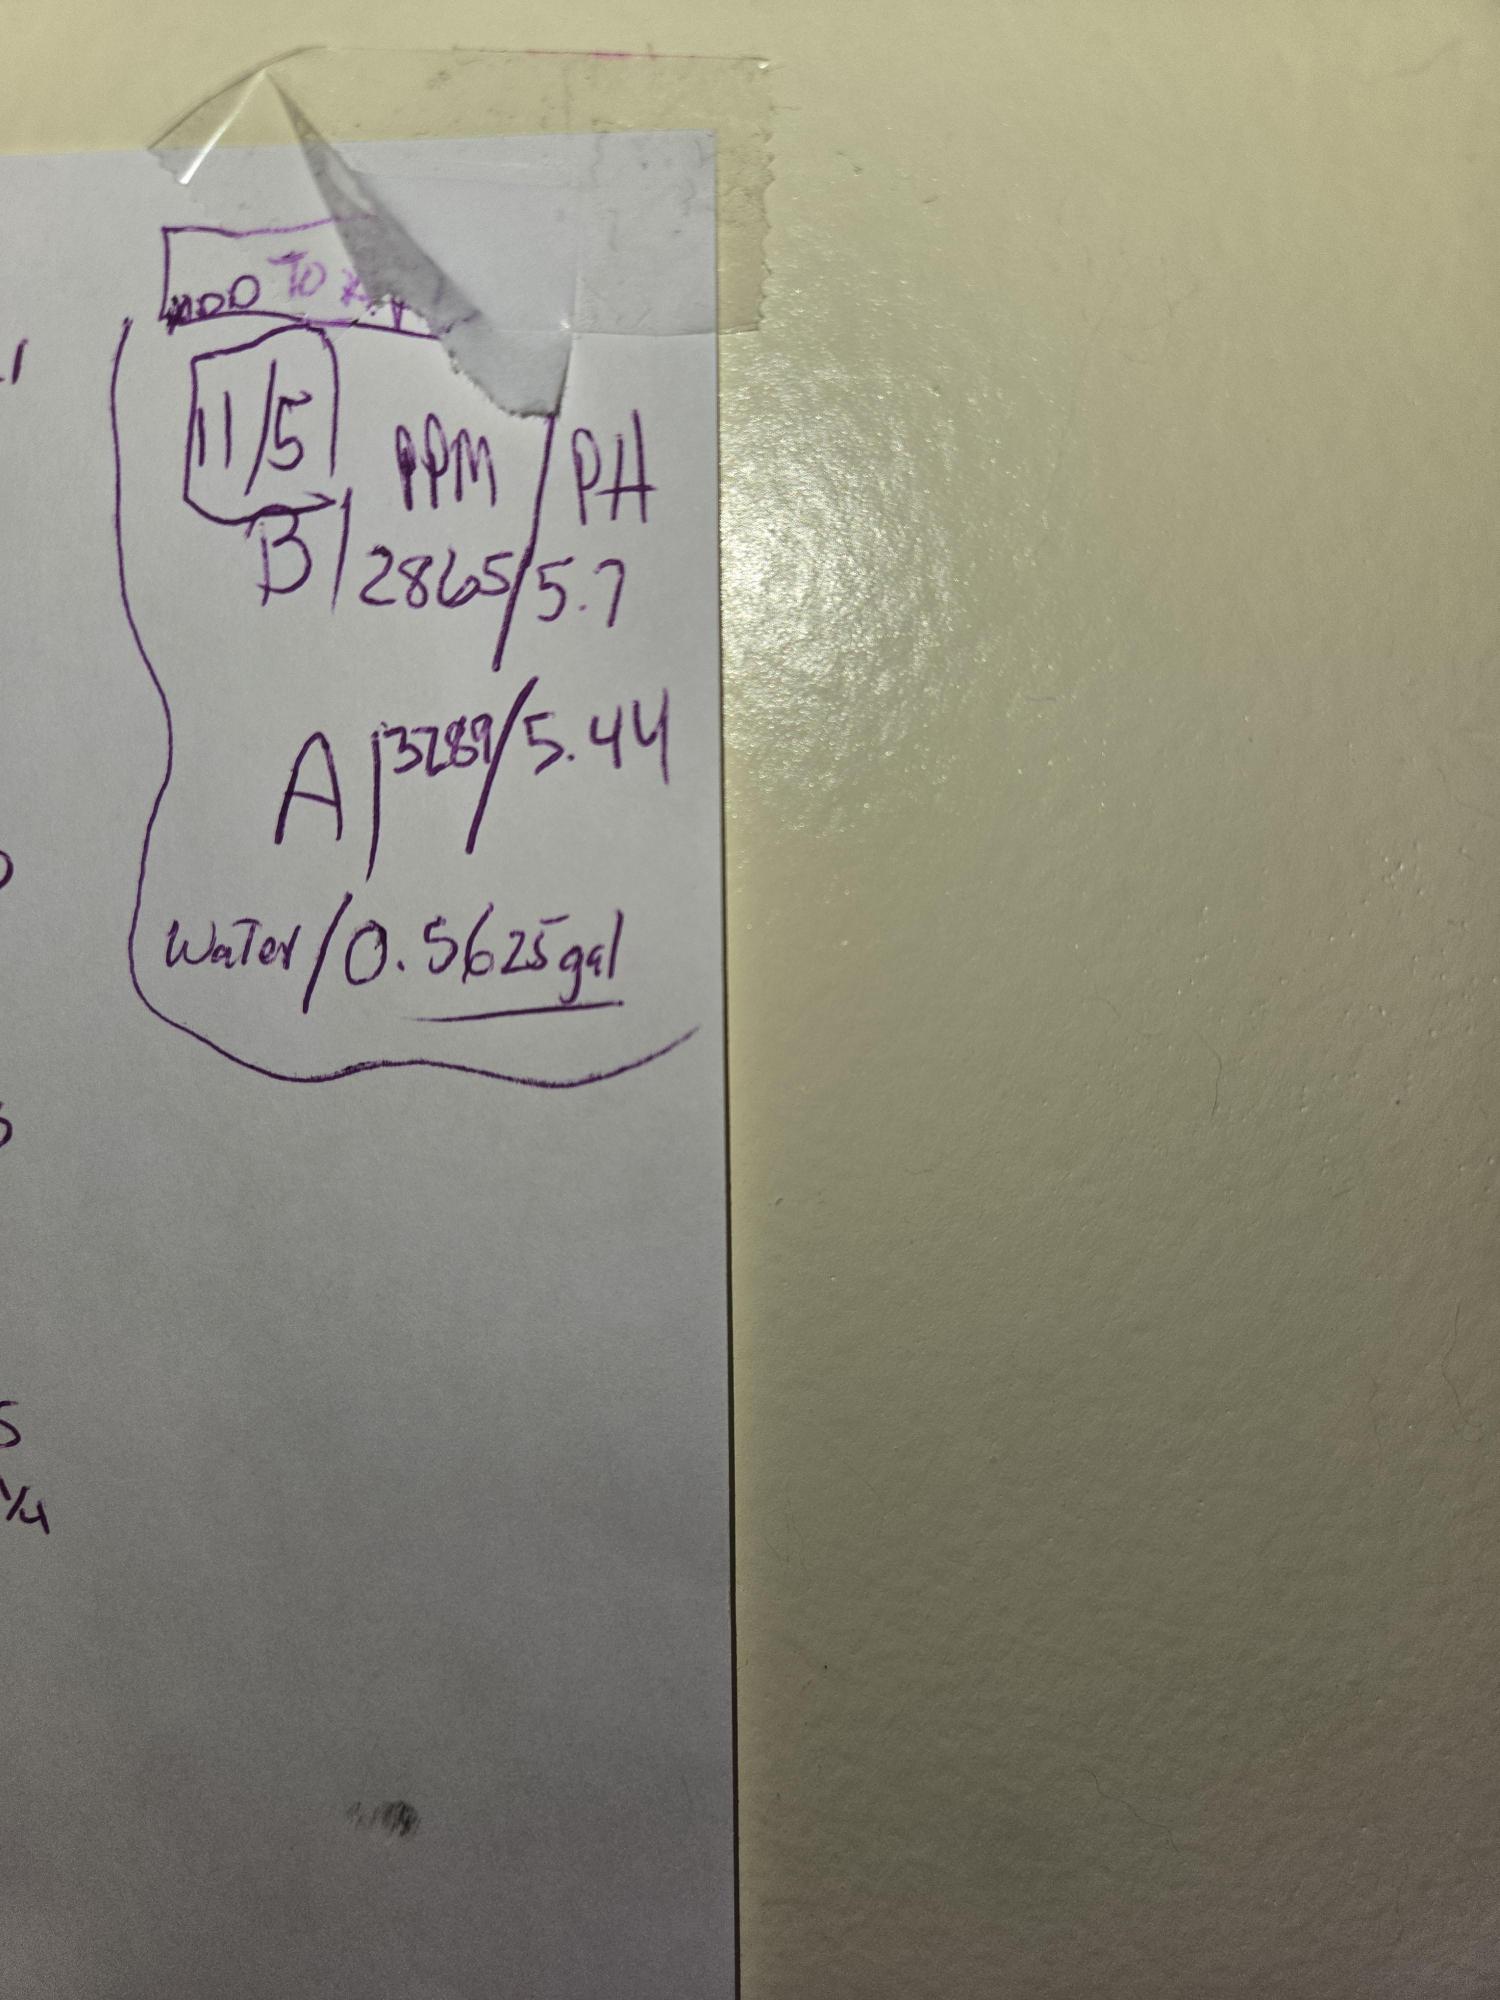 ADD TO
11/5
PPM / PH
B | 2865 / 5.7
A | 3289 / 5.44
Water / 0.5625gal
5
1/4